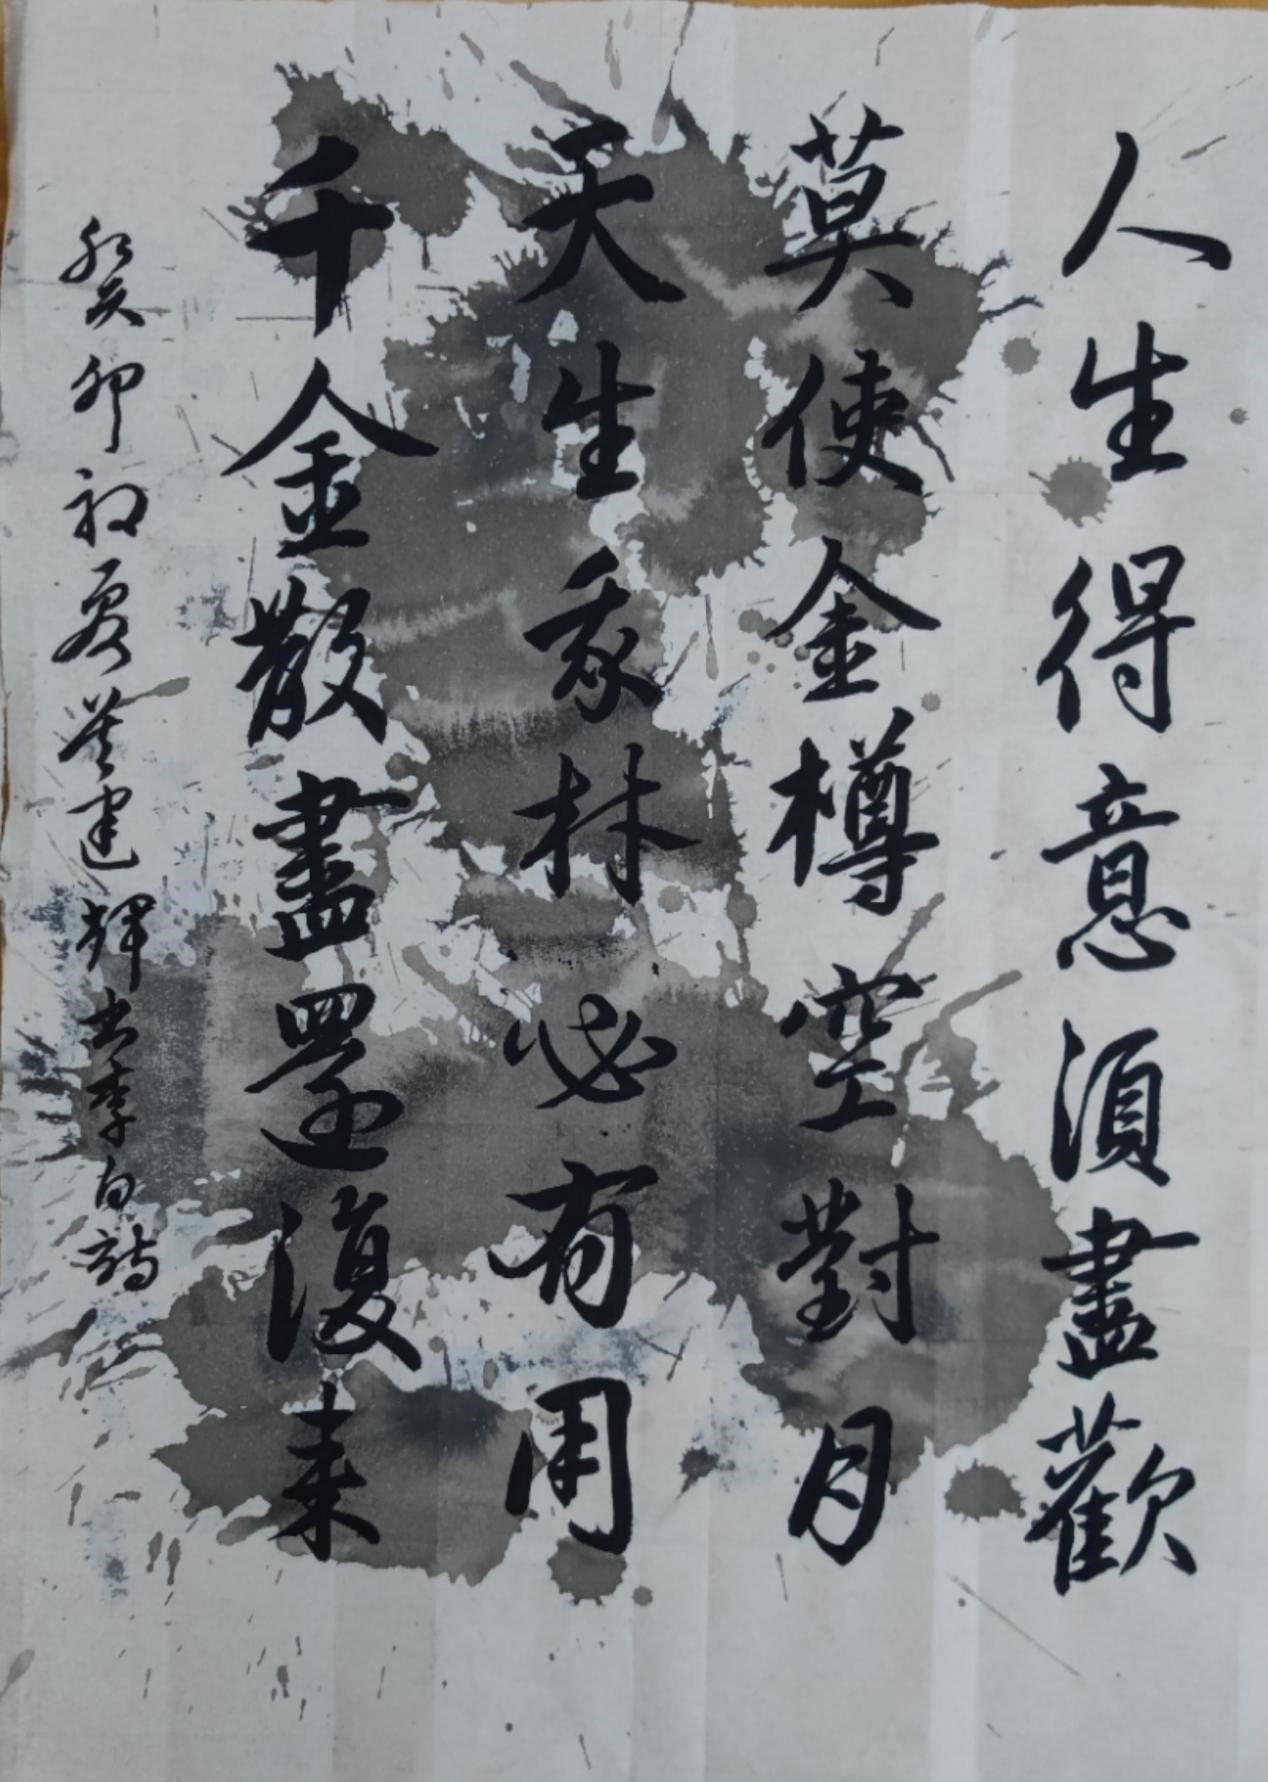 人生得意須盡歡
莫使金樽空對月
天生我材必有用
千金散盡還復來
癸卯初夏黃建輝书李白詩